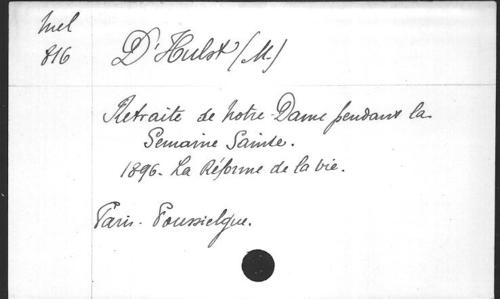 Mel
816
D'Hulst (M.)
Retraite de Notre-Dame pendant la
Semaine Sainte.
1896. La Réforme de la vie.
Paris. Poussielgue.